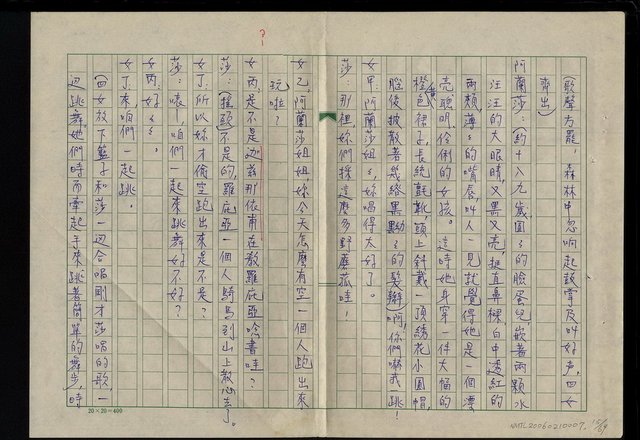 （歌聲方罷，森林中忽响起鼓掌及叫好声，四女
齊出）
阿蘭莎：（約十八九歲圓圓的臉蛋兒，嵌著兩顆水
汪汪的大眼睛又黑又亮，挺直鼻樑白中透紅的
兩頰薄薄的嘴唇，叫人一見就覺得她是一個漂
亮聰明、伶俐的女孩。這時她身穿一件大幅的
橙色裙子，長統氈靴，頭上斜戴一頂綉花小圓帽，
腦後披散著幾絡黑黝黝的髮辮）啊，你們嚇我一跳！
女甲：阿蘭莎姐姐，妳唱得太好了。
莎：那裡，妳們採這麼多野蘑菰哇！
女乙：阿蘭莎姐姐妳今天怎麼有空一個人跑出來
玩啦？
女丙：是不是迦茲那依甫在教羅庇亞唸書哇？
莎：（搖頭）不是的，羅庇亞一個人騎馬到山上散心去了。
女丁：所以妳才偷空跑出來是不是？
莎：唻，咱們一起來跳舞好不好？
女丙：好好。
女丁：來，咱們一起跳。
（四女放下籃子和莎一边合唱剛才莎唱的歌，一
边跳舞，她們時而牽起手來跳著簡單的舞步，時
20×20=400
NMTL20060210007